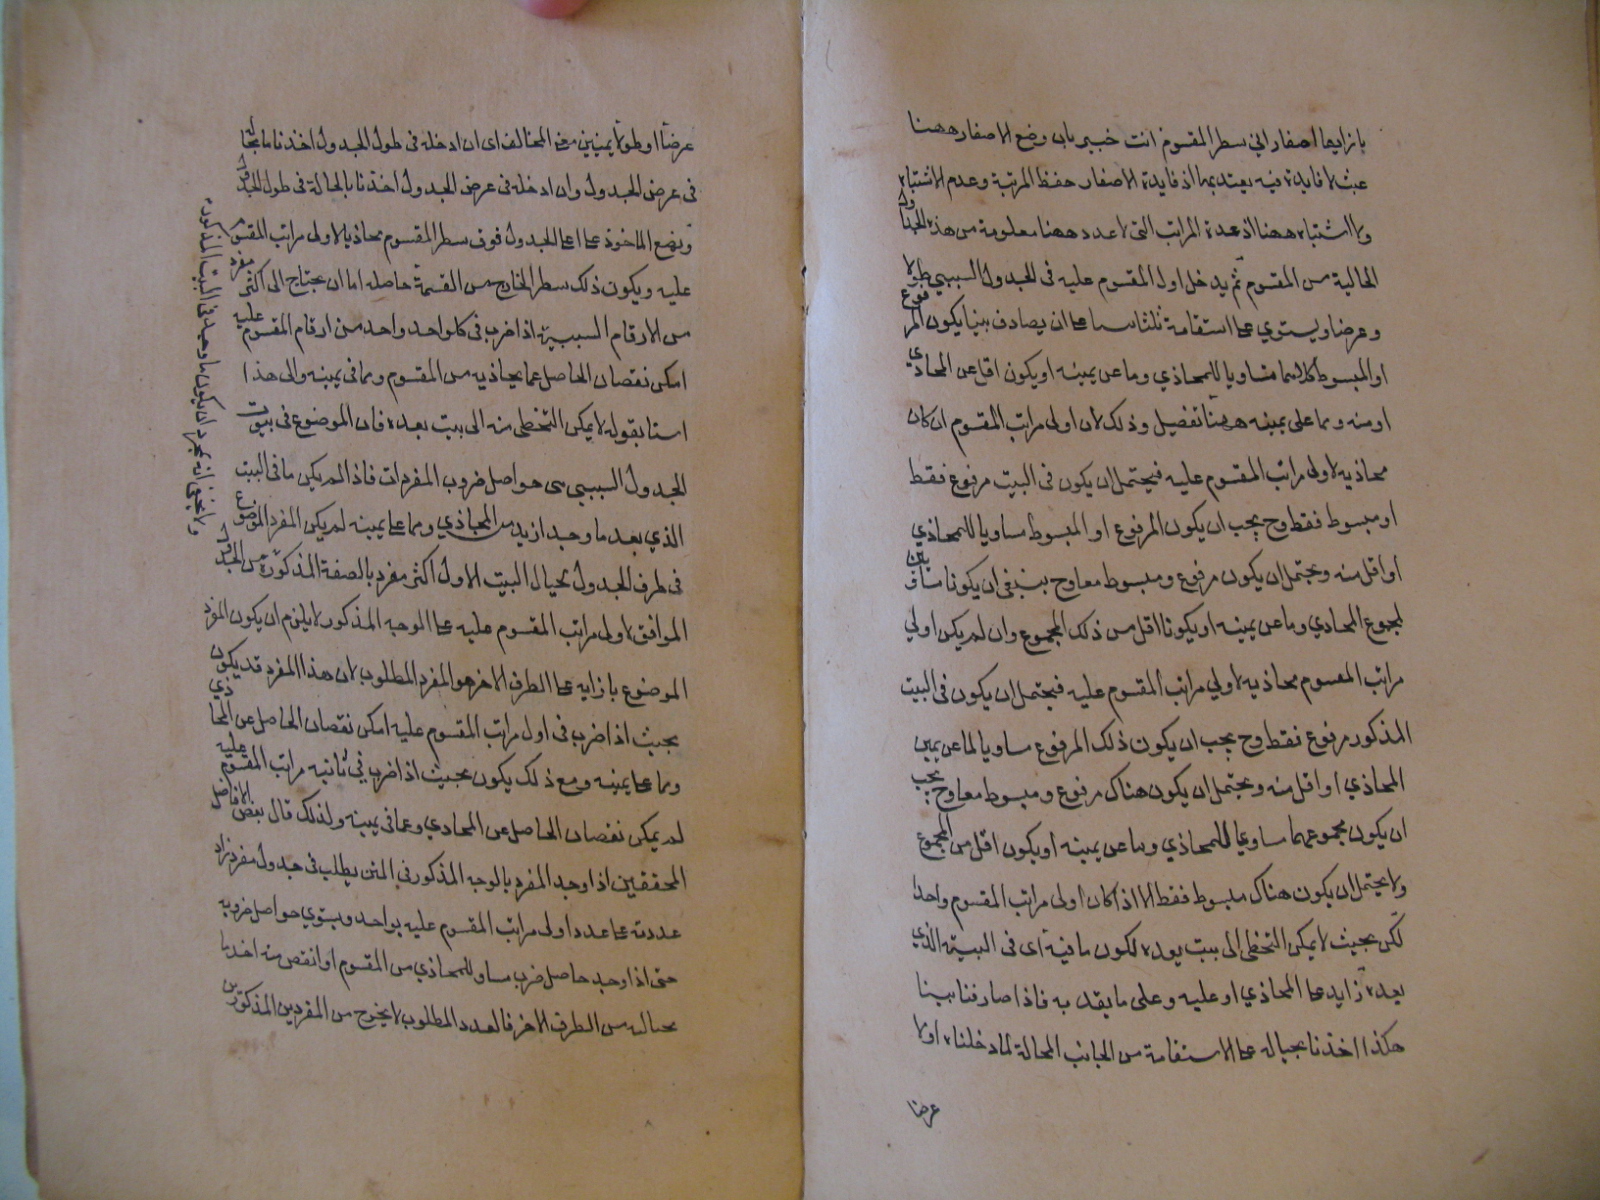 بازايها اصفار الي سطر المقسوم انت خبير بان وضع الاصفار ههنا
عبث لا فايدة فيه يعتد بها اذ فايدة الاصفار حفظ المرتبة وعدم الاشتباه
ولا اشتباه ههنا اذ عدة المراتب التى لا عدد ههنا معلومة من هذه الجداول
الخالية من المقسوم ثم يدخل اول المقسوم عليه فى الجدول السبيبي طولا
وعرضا ويستوي على استقامة الى ان يصادف بيتا يكون المرفوع
او المبسوط كلاهما مساويا للمحاذي وما عن يمينه او يكون اقل عن المحاذي
او منه وما على يمينه ههنا تفصيل وذلك لان اولى مراتب المقسوم ان كان
محاذيه لاولى مراتب المقسوم عليه فيحتمل ان يكون فى البيت مرفوع فقط
او مبسوط فقط وح يجب ان يكون المرفوع او المبسوط مساويا للمحاذي
او اقل منه ويحتمل ان يكون مرفوع ومبسوط معا وح ينبغى ان يكونا مساويين
لمجموع المحاذي وما عن يمينه او يكونا اقل من ذلك المجموع وان لم يكن اولي
مراتب المقسوم محاذيه لاولي مراتب المقسوم عليه فيحتمل ان يكون فى البيت
المذكور مرفوع فقط وح يجب ان يكون ذلك المرفوع مساويا لما عن يمين
المحاذي او اقل منه ويحتمل ان يكون هناك مرفوع ومبسوط معا وح يجب
ان يكون مجموعهما مساويا للمحاذي وما عن يمينه او يكون اقل من المجموع
ولا يحتمل ان يكون هناك مبسوط فقط الا اذا كان اولى مراتب المقسوم واحدا
لكن بحيث لا يمكن التخطى الى بيت بعده لكون ما فيه اى فى البيت الذي
بعده زايد على المحاذي او عليه وعلى ما يقد به فاذا صادفنا بيتا
هكذا اخذنا بحياله على الاستقامة من الجانب المحالة لما دخلناه اولا
عرضا
عرضا او طولا يمينين معنى المخالف اى ان ادخله فى طول الجدول اخذنا ما بحياله
فى عرض الجدول وان ادخله فى عرض الجدول اخذنا بالحالة فى طول الجدول
ويضع الماخوذ على اعلا الجدول فوق سطر المقسوم محاذيا لاولى مراتب المقسوم
عليه ويكون ذلك سطر الخارج من القسمة حاصله اما ان يحتاج الى اكثر مفرد
من الارقام السبيبية اذا ضرب فى كل واحد واحد من ارقام المقسوم عليه
امكن نقصان الحاصل عما يحاذيه من المقسوم ومما فى يمينه والى هذا
اشار بقوله لا يمكن التخطى منه الى بيت بعده فان الموضوع فى بيوت
الجدول السبيبي هى حواصل ضروب المفردات فاذا لم يكن ما فى البيت
الذي بعد ما وجد ازيد من المحاذي ومما على يمينه لم يكن المفرد الموضوع
فى طرف الجدول بحيال البيت الاول اكثر مفرد بالصفة المذكورة من الجدول
الموافق لاولى مراتب المقسوم عليه على الوجه المذكور لا يلزم ان يكون المفرد
الموضوع بازايه على الطرف الاخر هو المفرد المطلوب لان هذا المفرد قد يكون
بحيث اذا ضرب فى اول مراتب المقسوم عليه امكن نقصان الحاصل عن المحاذي
ومما على يمينه ومع ذلك يكون بحيث اذا ضرب فى ثانيه مراتب المقسوم عليه
لم يمكن نقصان الحاصل عن المحاذي وعما فى يمينه ولذلك قال بعض الافاضل
المحققين اذا وجد المفرد بالوجه المذكور فى المتن يطلب فى جدول مفرد زاد
عددته على عدد اولى مراتب المقسوم عليه بواحد ويستوي حواصل ضروبه
حتى اذا وجد حاصل ضرب مساو للمحاذي من المقسوم او انقص منه اخذنا
بحياله من الطرف الاخر فالعدد المطلوب لا يخرج من المفردين المذكورين
ولا يخفى انه بمجرد ان يكون ما وجد فى البيت المذكور